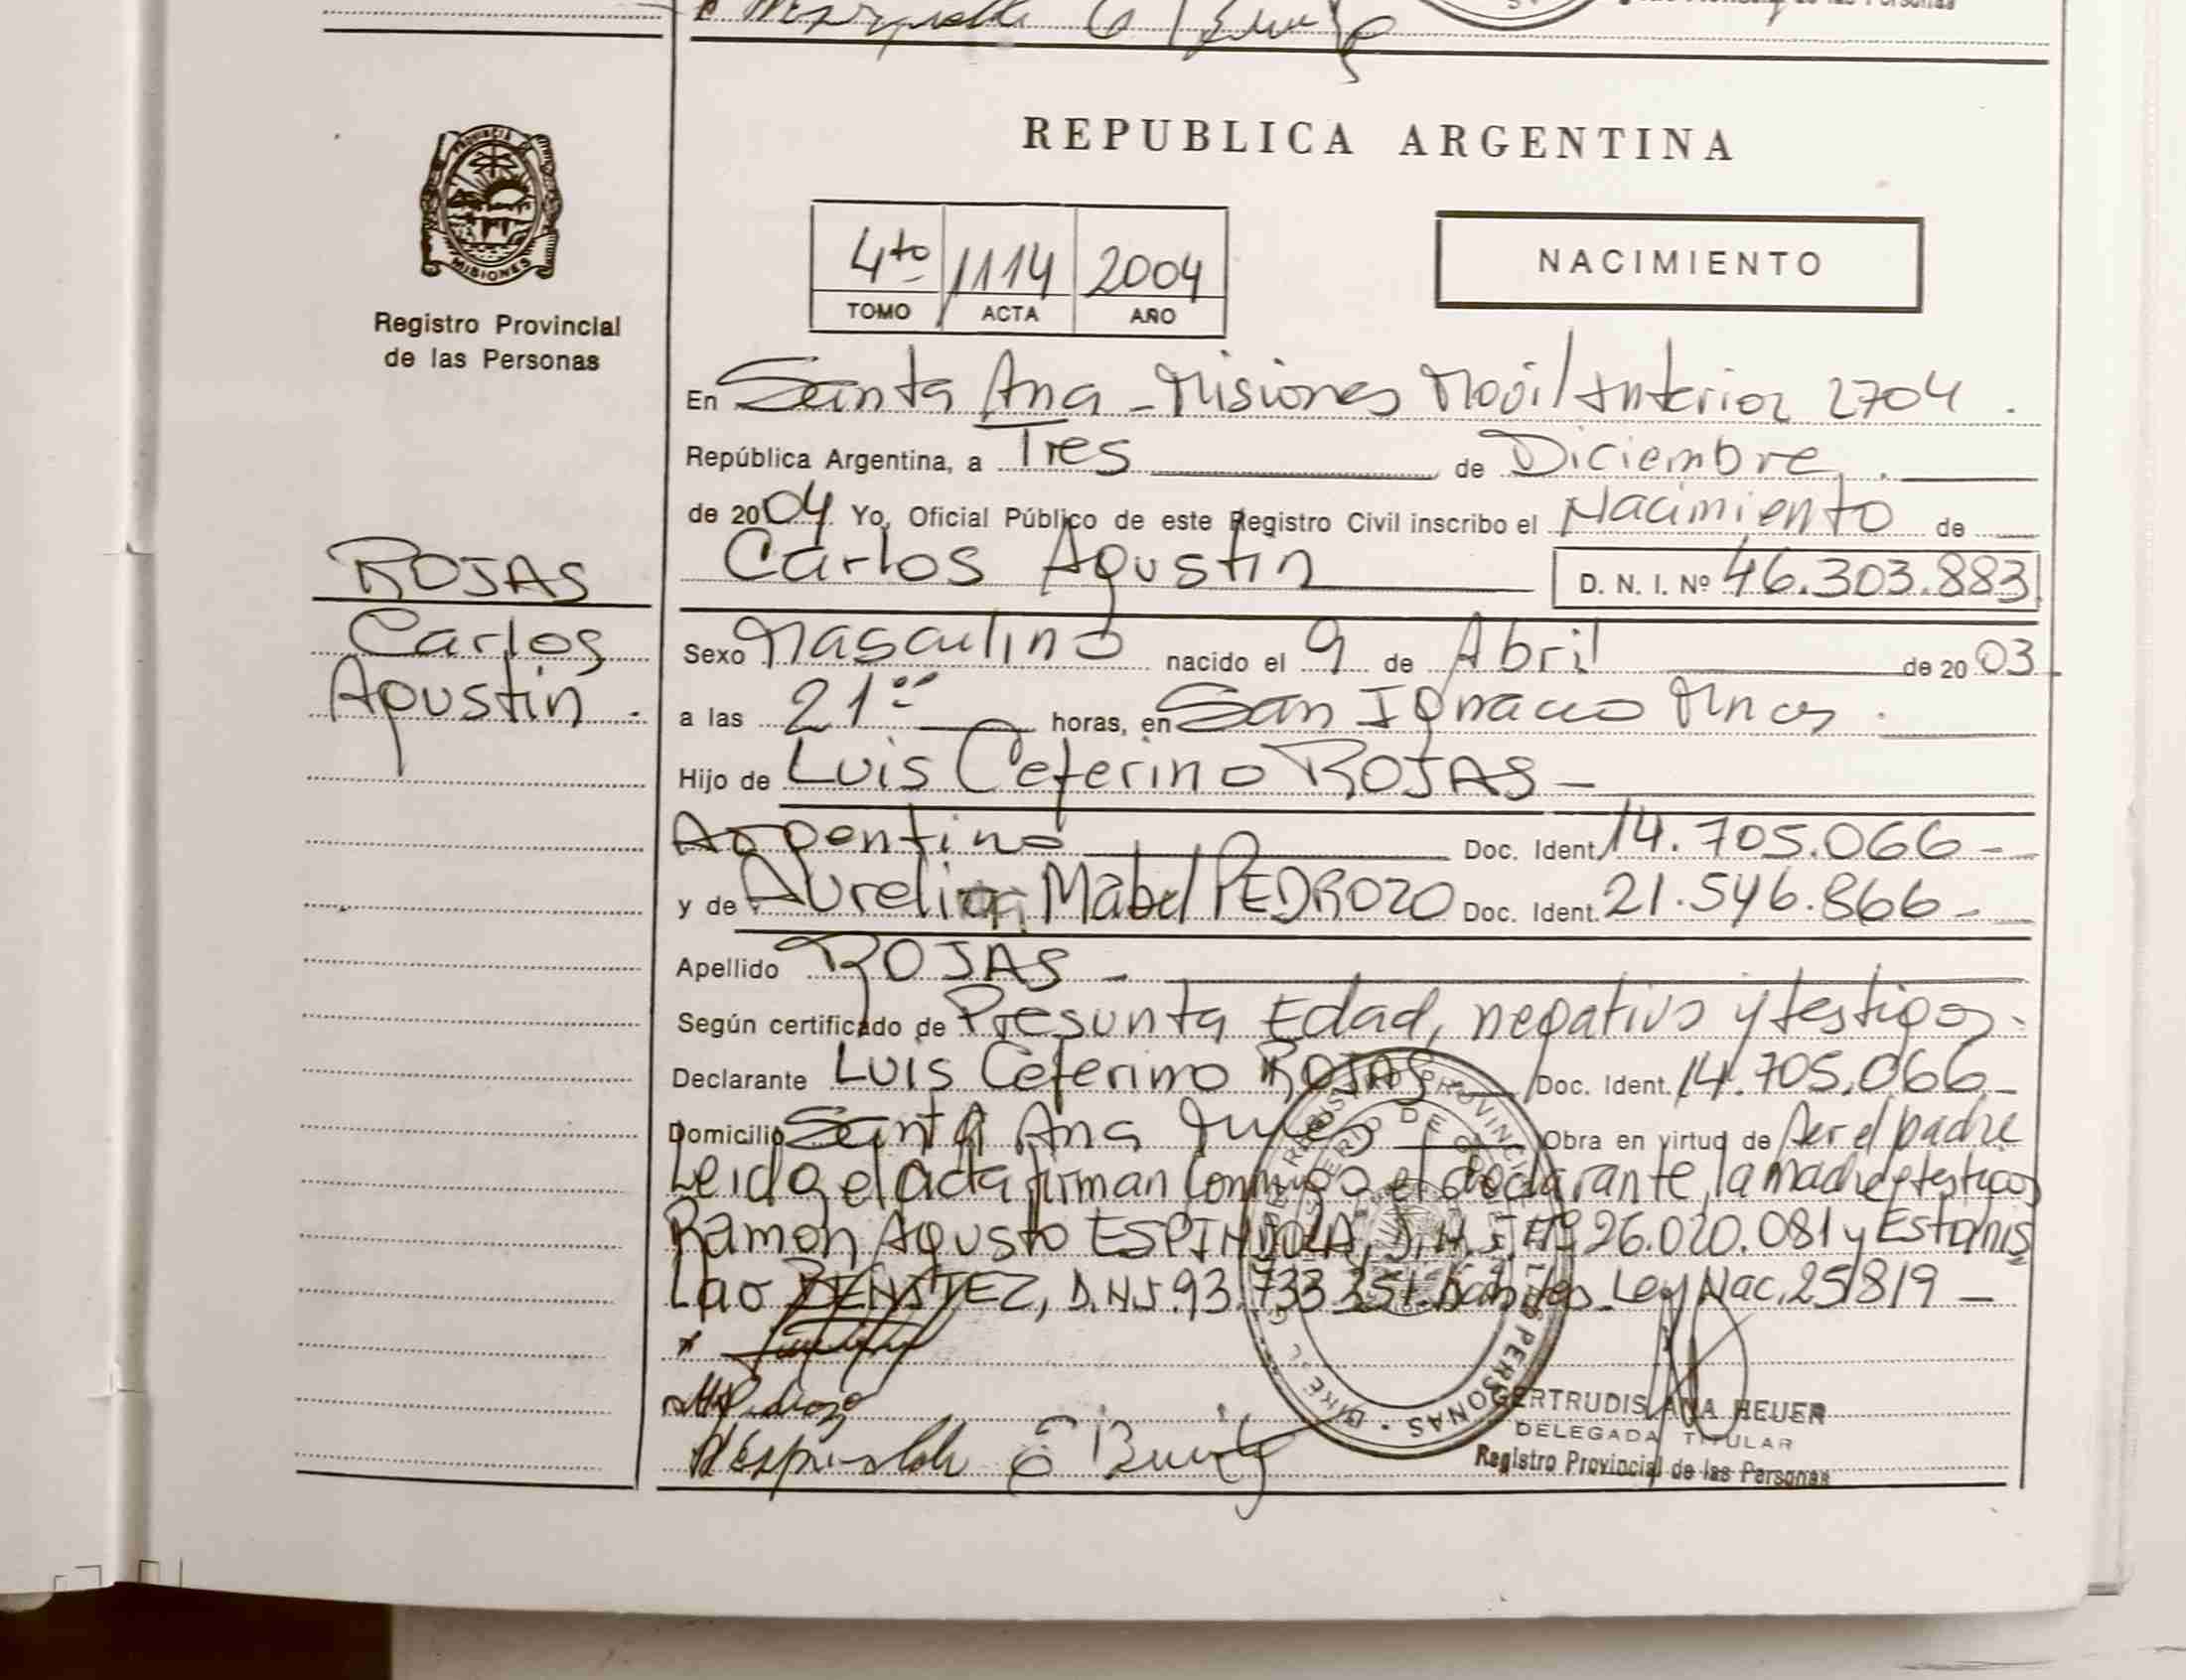 REPUBLICA ARGENTINA
PROVINCIA DE MISIONES
Registro Provincial
de las Personas
4to 1114 2004
TOMO ACTA AÑO
NACIMIENTO
ROJAS
Carlos
Agustin.
En Santa Ana - Misiones Movil Interior 2704.
República Argentina, a Tres de Diciembre.
de 2004 Yo, Oficial Público de este Registro Civil inscribo el Nacimiento de
Carlos Agustin D. N. I. Nº 46.303.883
Sexo Masculino nacido el 9 de Abril de 2003
a las 21 horas, en San Ignacio Mnes.
Hijo de Luis Ceferino ROJAS -
Argentino Doc. Ident. 14.705.066 -
y de Aurelia Mabel PEDROZO Doc. Ident. 21.546.866 -
Apellido ROJAS -
Según certificado de Presunta Edad, negativo y testigos.
Declarante Luis Ceferino ROJAS Doc. Ident. 14.705.066
Domicilio Santa Ana Obra en virtud de ser el padre
Leida el acta firman conmigo el declarante, la madre testigos
Ramon Agusto ESPINDOLA, D.N.I. Nº 26.020.081 y Estanis
Lao BENITEZ, D.N.I. 93.733.351. Ley Nac. 25819 -
GERTRUDIS ANA HEUER
DELEGADA TITULAR
Registro Provincial de las Personas